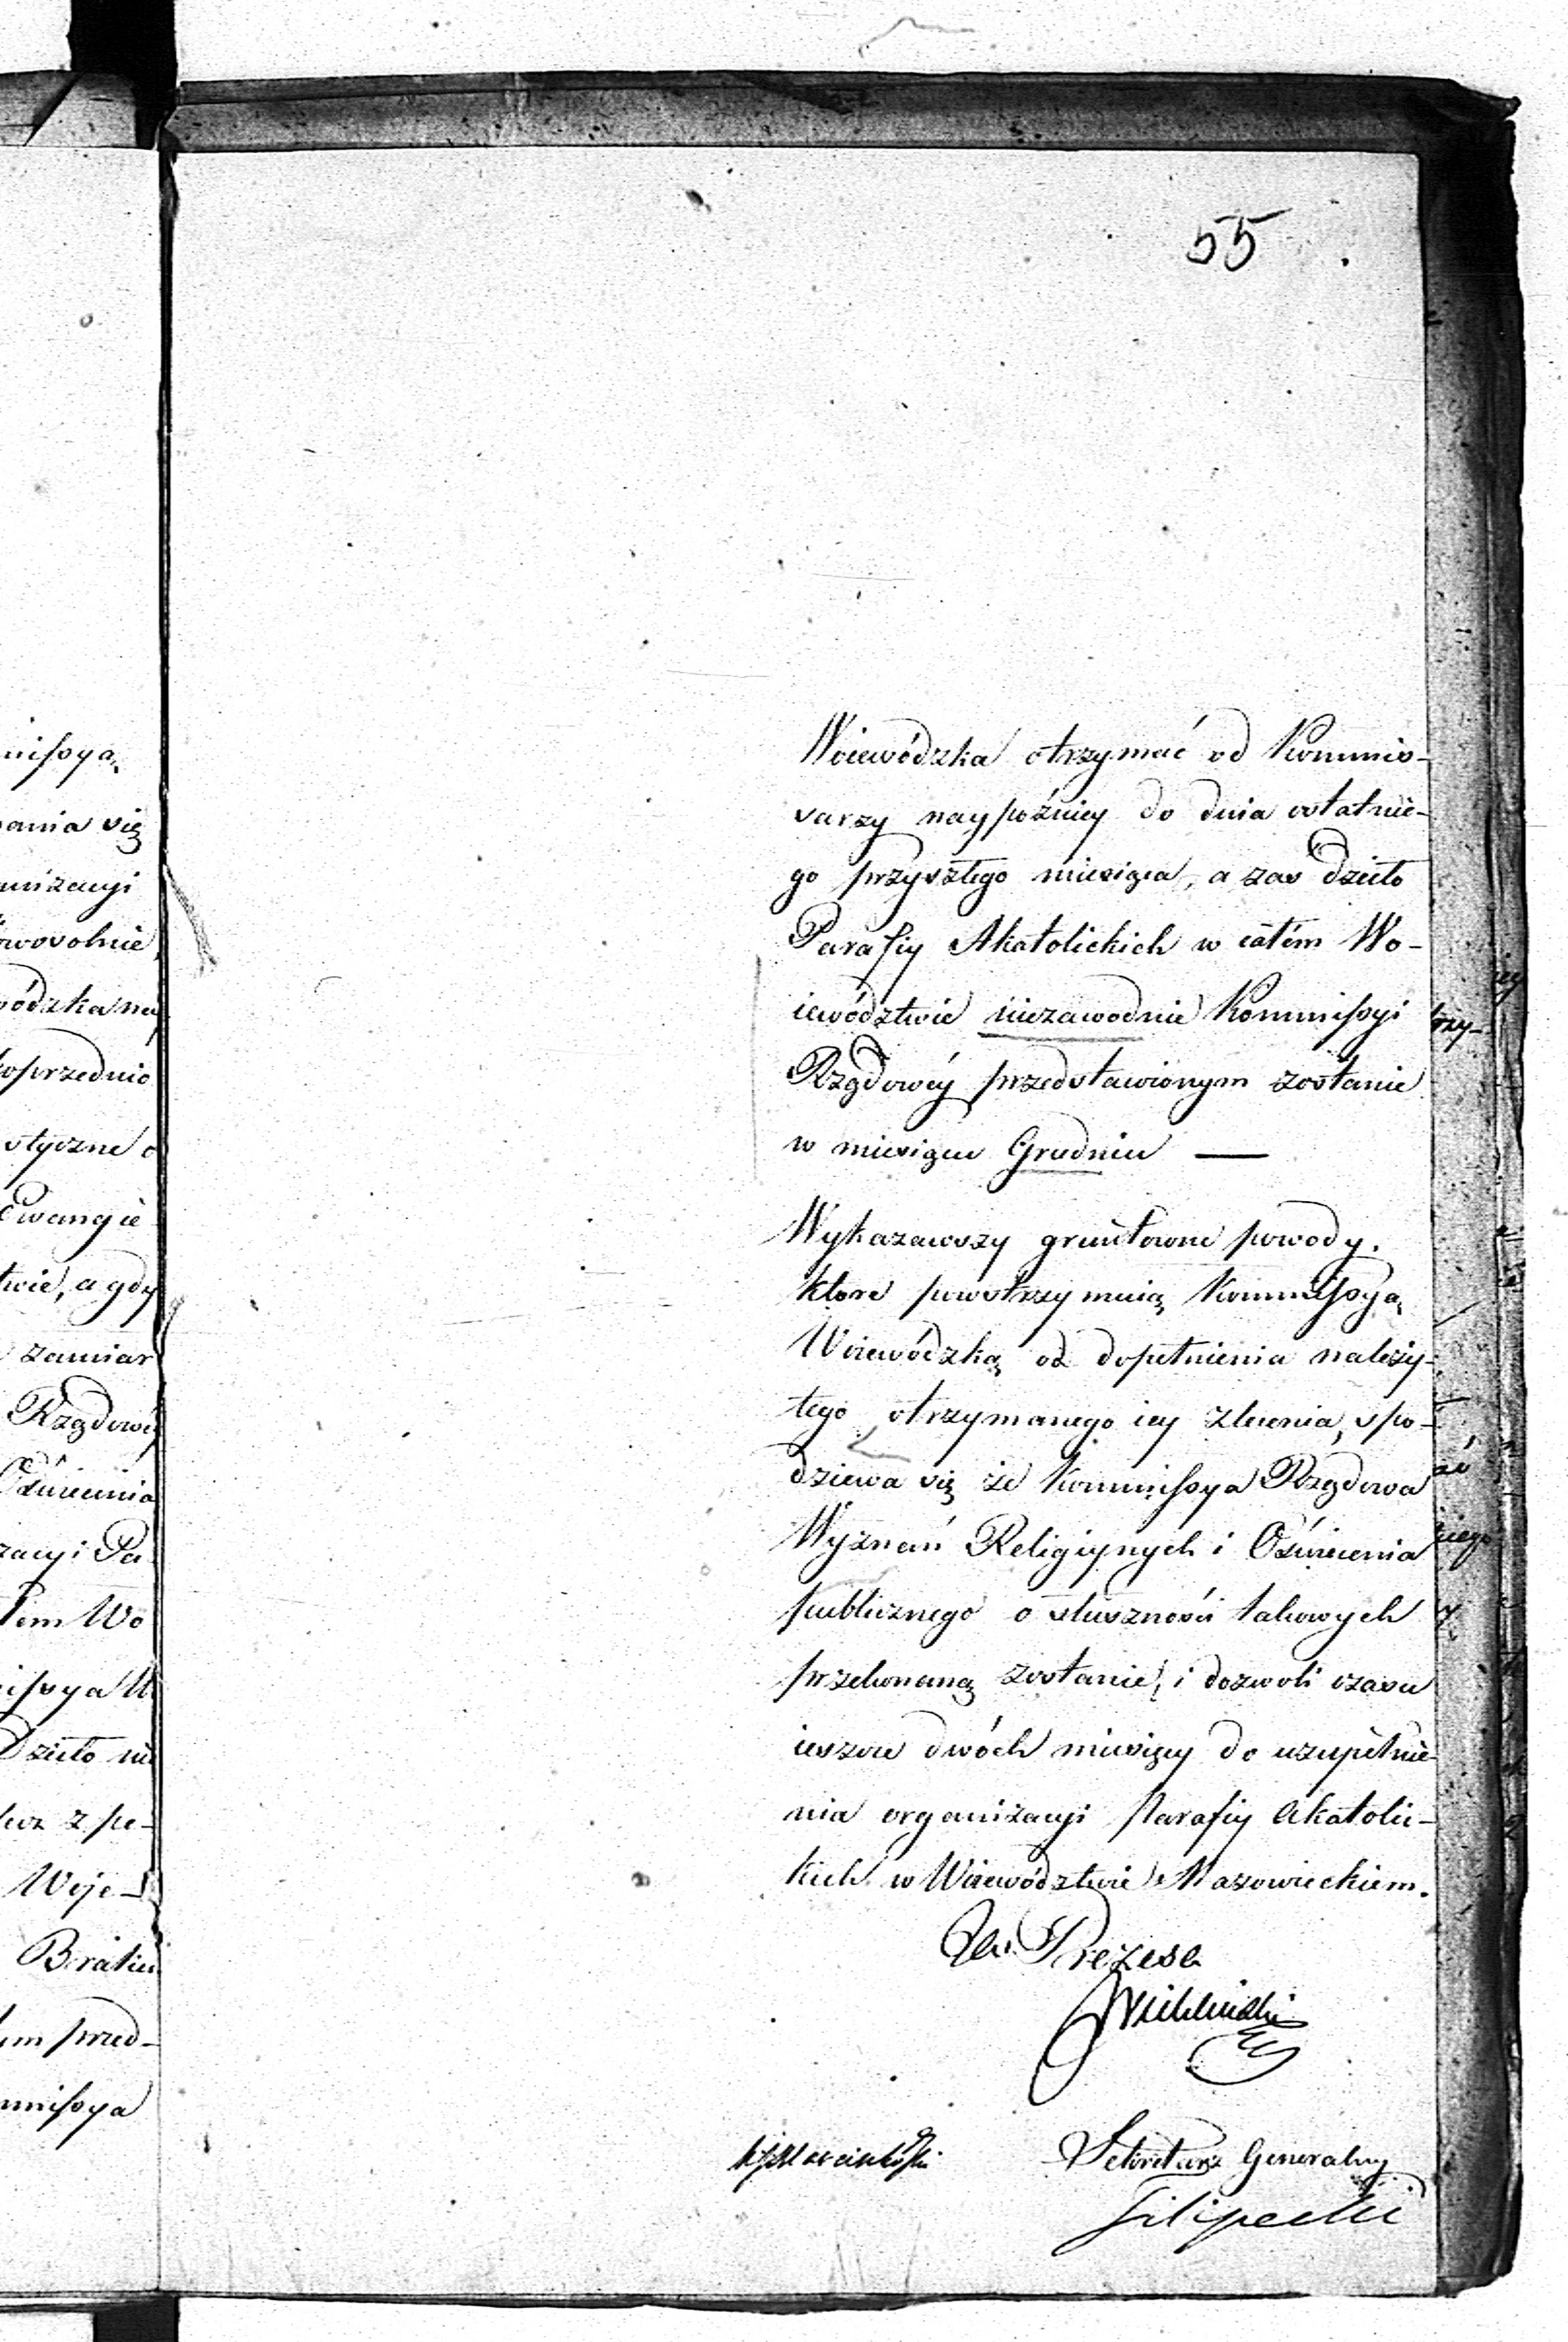 55
Woiewódzka otrzymać od Kommis-
sarzy naypóźniey do dnia ostatnie-
go przyszłego miesiąca, a zas dzieło
Parafiy Akatolickich w całém Wo-
iewództwie niezawodnie Kommissyi
Rządowéy przedstawionym zostanie
w miesiącu Grudniu —
Wykazawszy gruntowne powody,
które powstrzymuią Kommissyą
Woiewódzką od dopełnienia należy-
tego otrzymanego iey zlecenia, spo-
dziewa się że Kommissya Rządowa
Wyznań Religiynych i Oświecenia
publicznego o słuszności takowych
przekonaną zostanie, i dozwoli czasu
ieszcze dwóch miesięcy do uzupełnie-
nia organizacyi Parafiy Akatolic-
kich w Woiewództwie Mazowieckiem.
Za Prezesa
Sekretarz Generalny
Filipecki
missyą
ania się
nizacyi
owolnie
ódzka na
poprzednio
styczne o
Ewangie
twie, a gdy
zamiar
Rządowéy
Oświecenia
zacyi Pa
łem Wo
issya W
Dzieło nie
lecz z po-
Woje-
Bratki
im przed-
missya